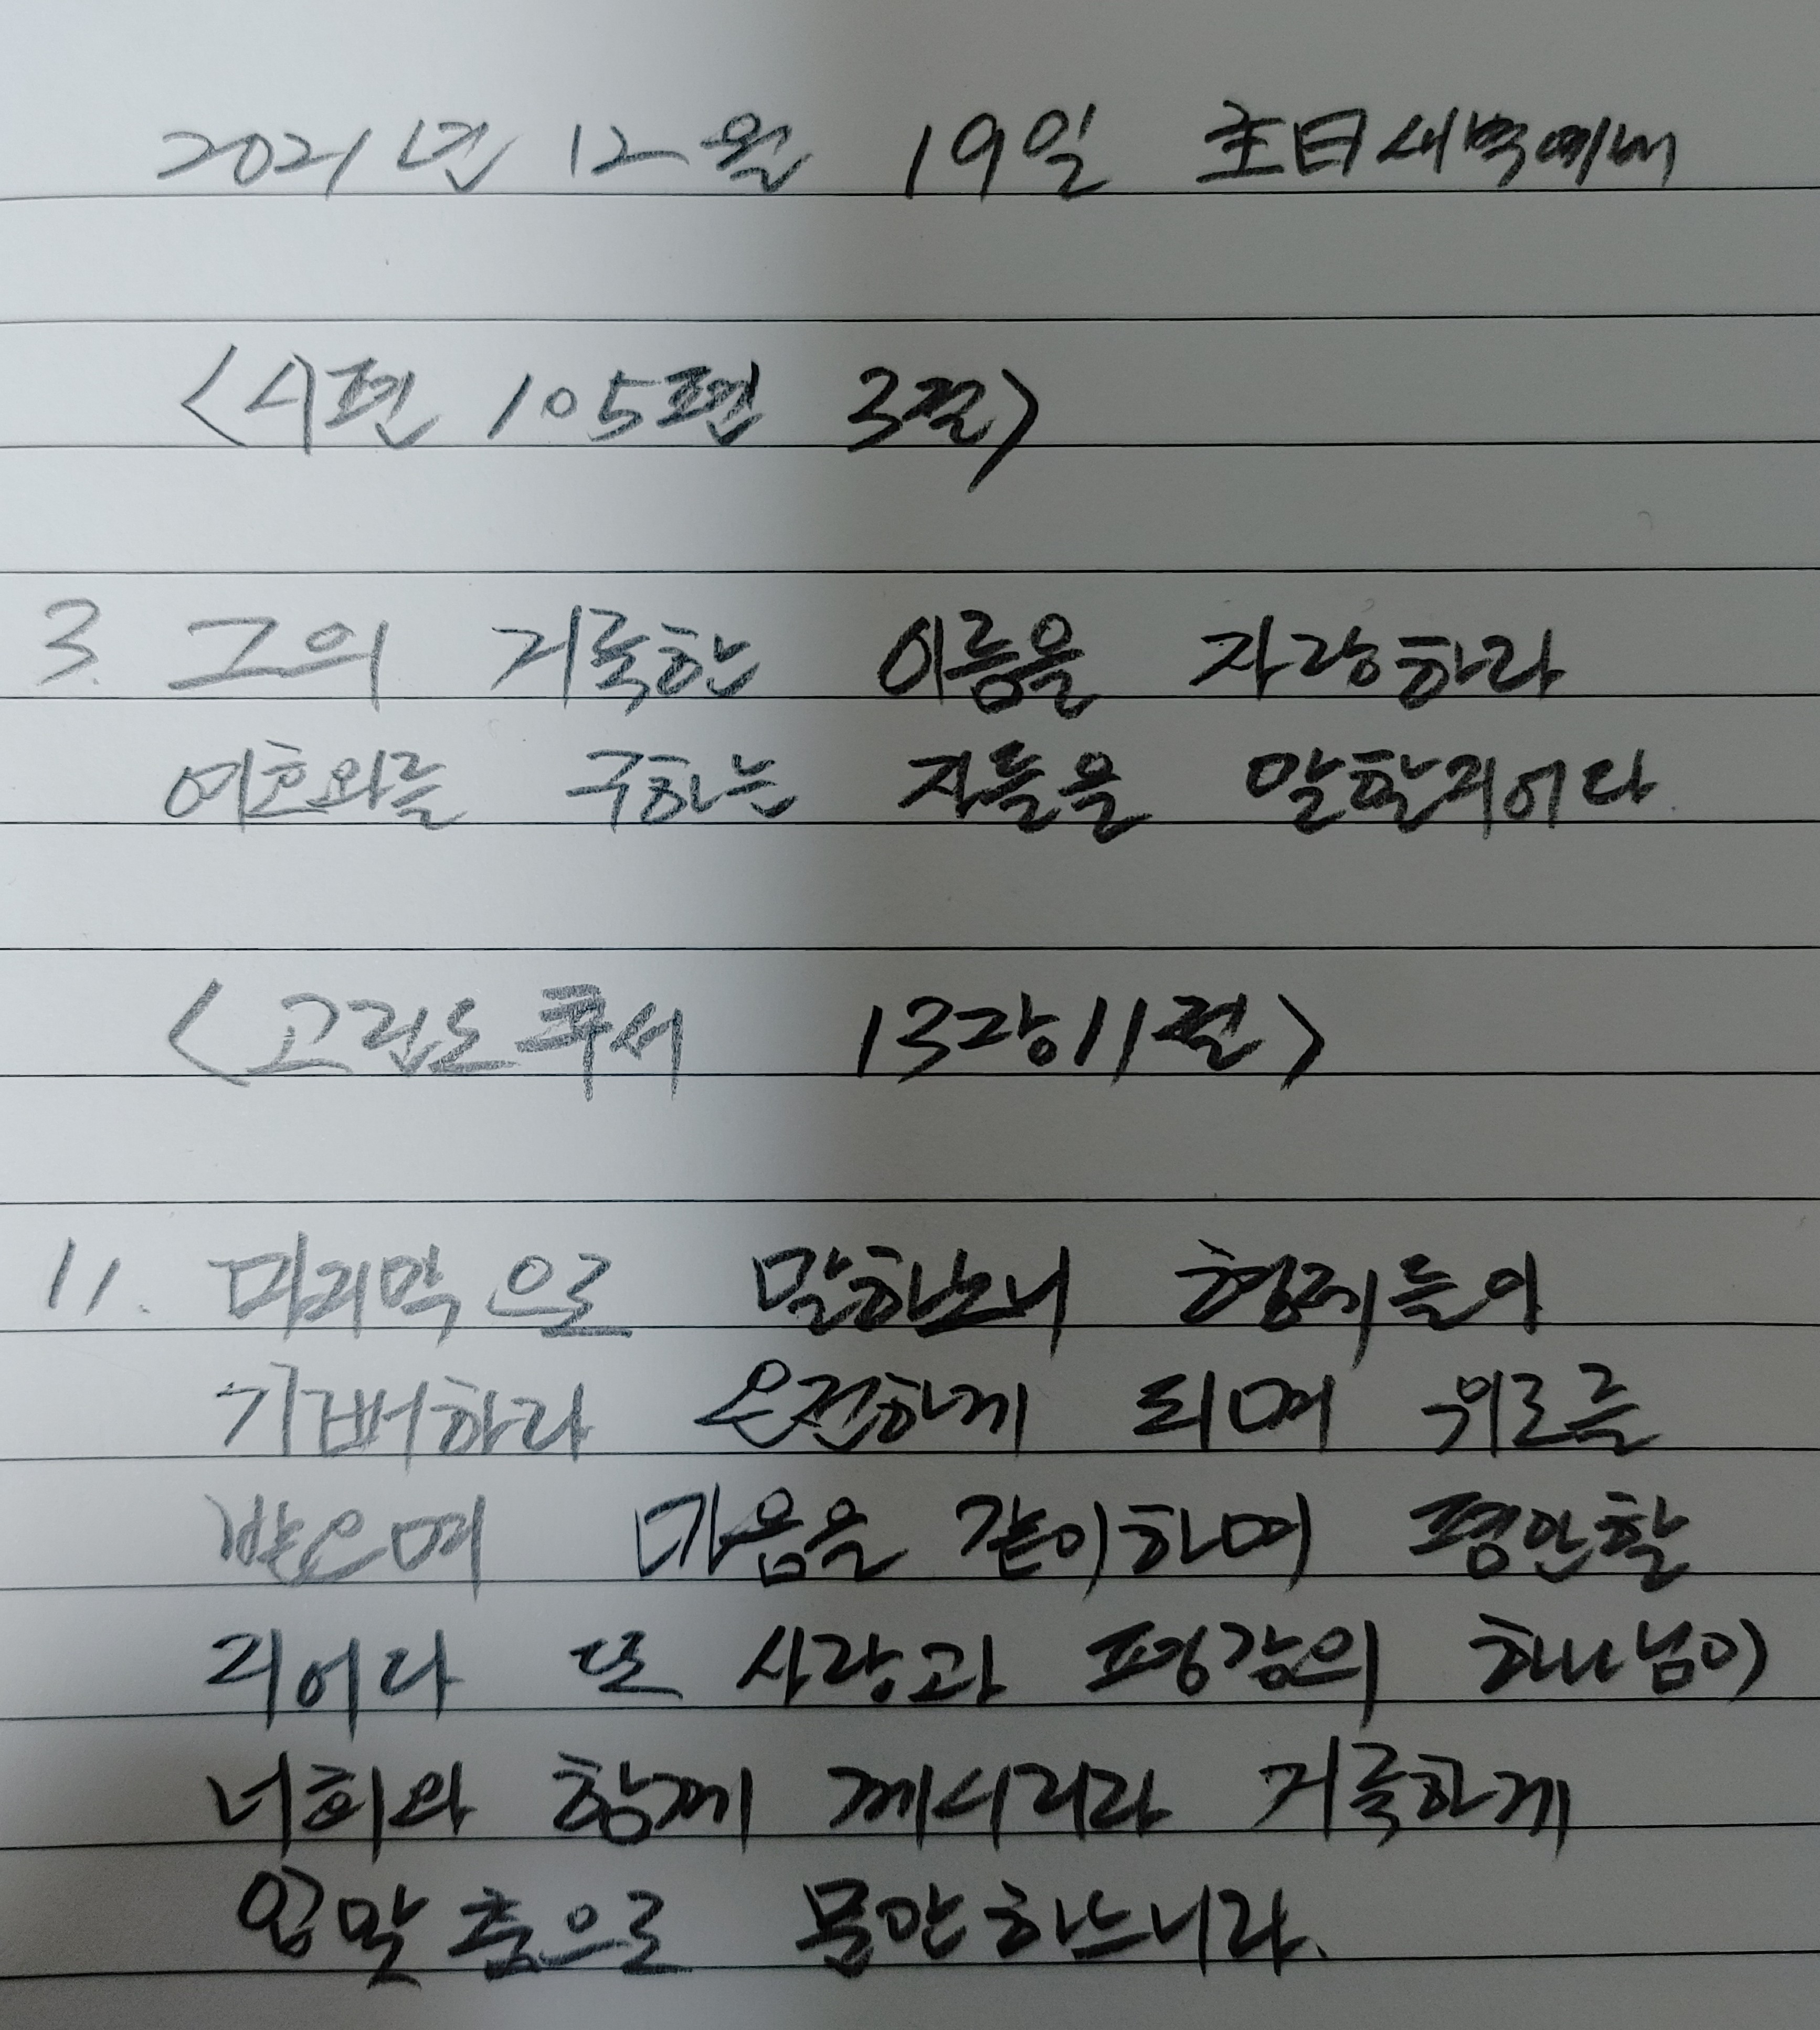 2021년 12월 19일 主日새벽예배
<시편 105편 3절>
3. 그의 거룩한 이름을 자랑하라
여호와를 구하는 자들을 말할지어다.
<고립도후서 13장11절>
11. 마지막으로 말하노니 형제들아
기뻐하라 온전하게 되며 위로를
받으며 마음을 같이하며 평안할
지어다 또 사랑과 평강의 하나님이
너희와 함께 께시리라 거룩하게
입맞춤으로 문안하느니라.